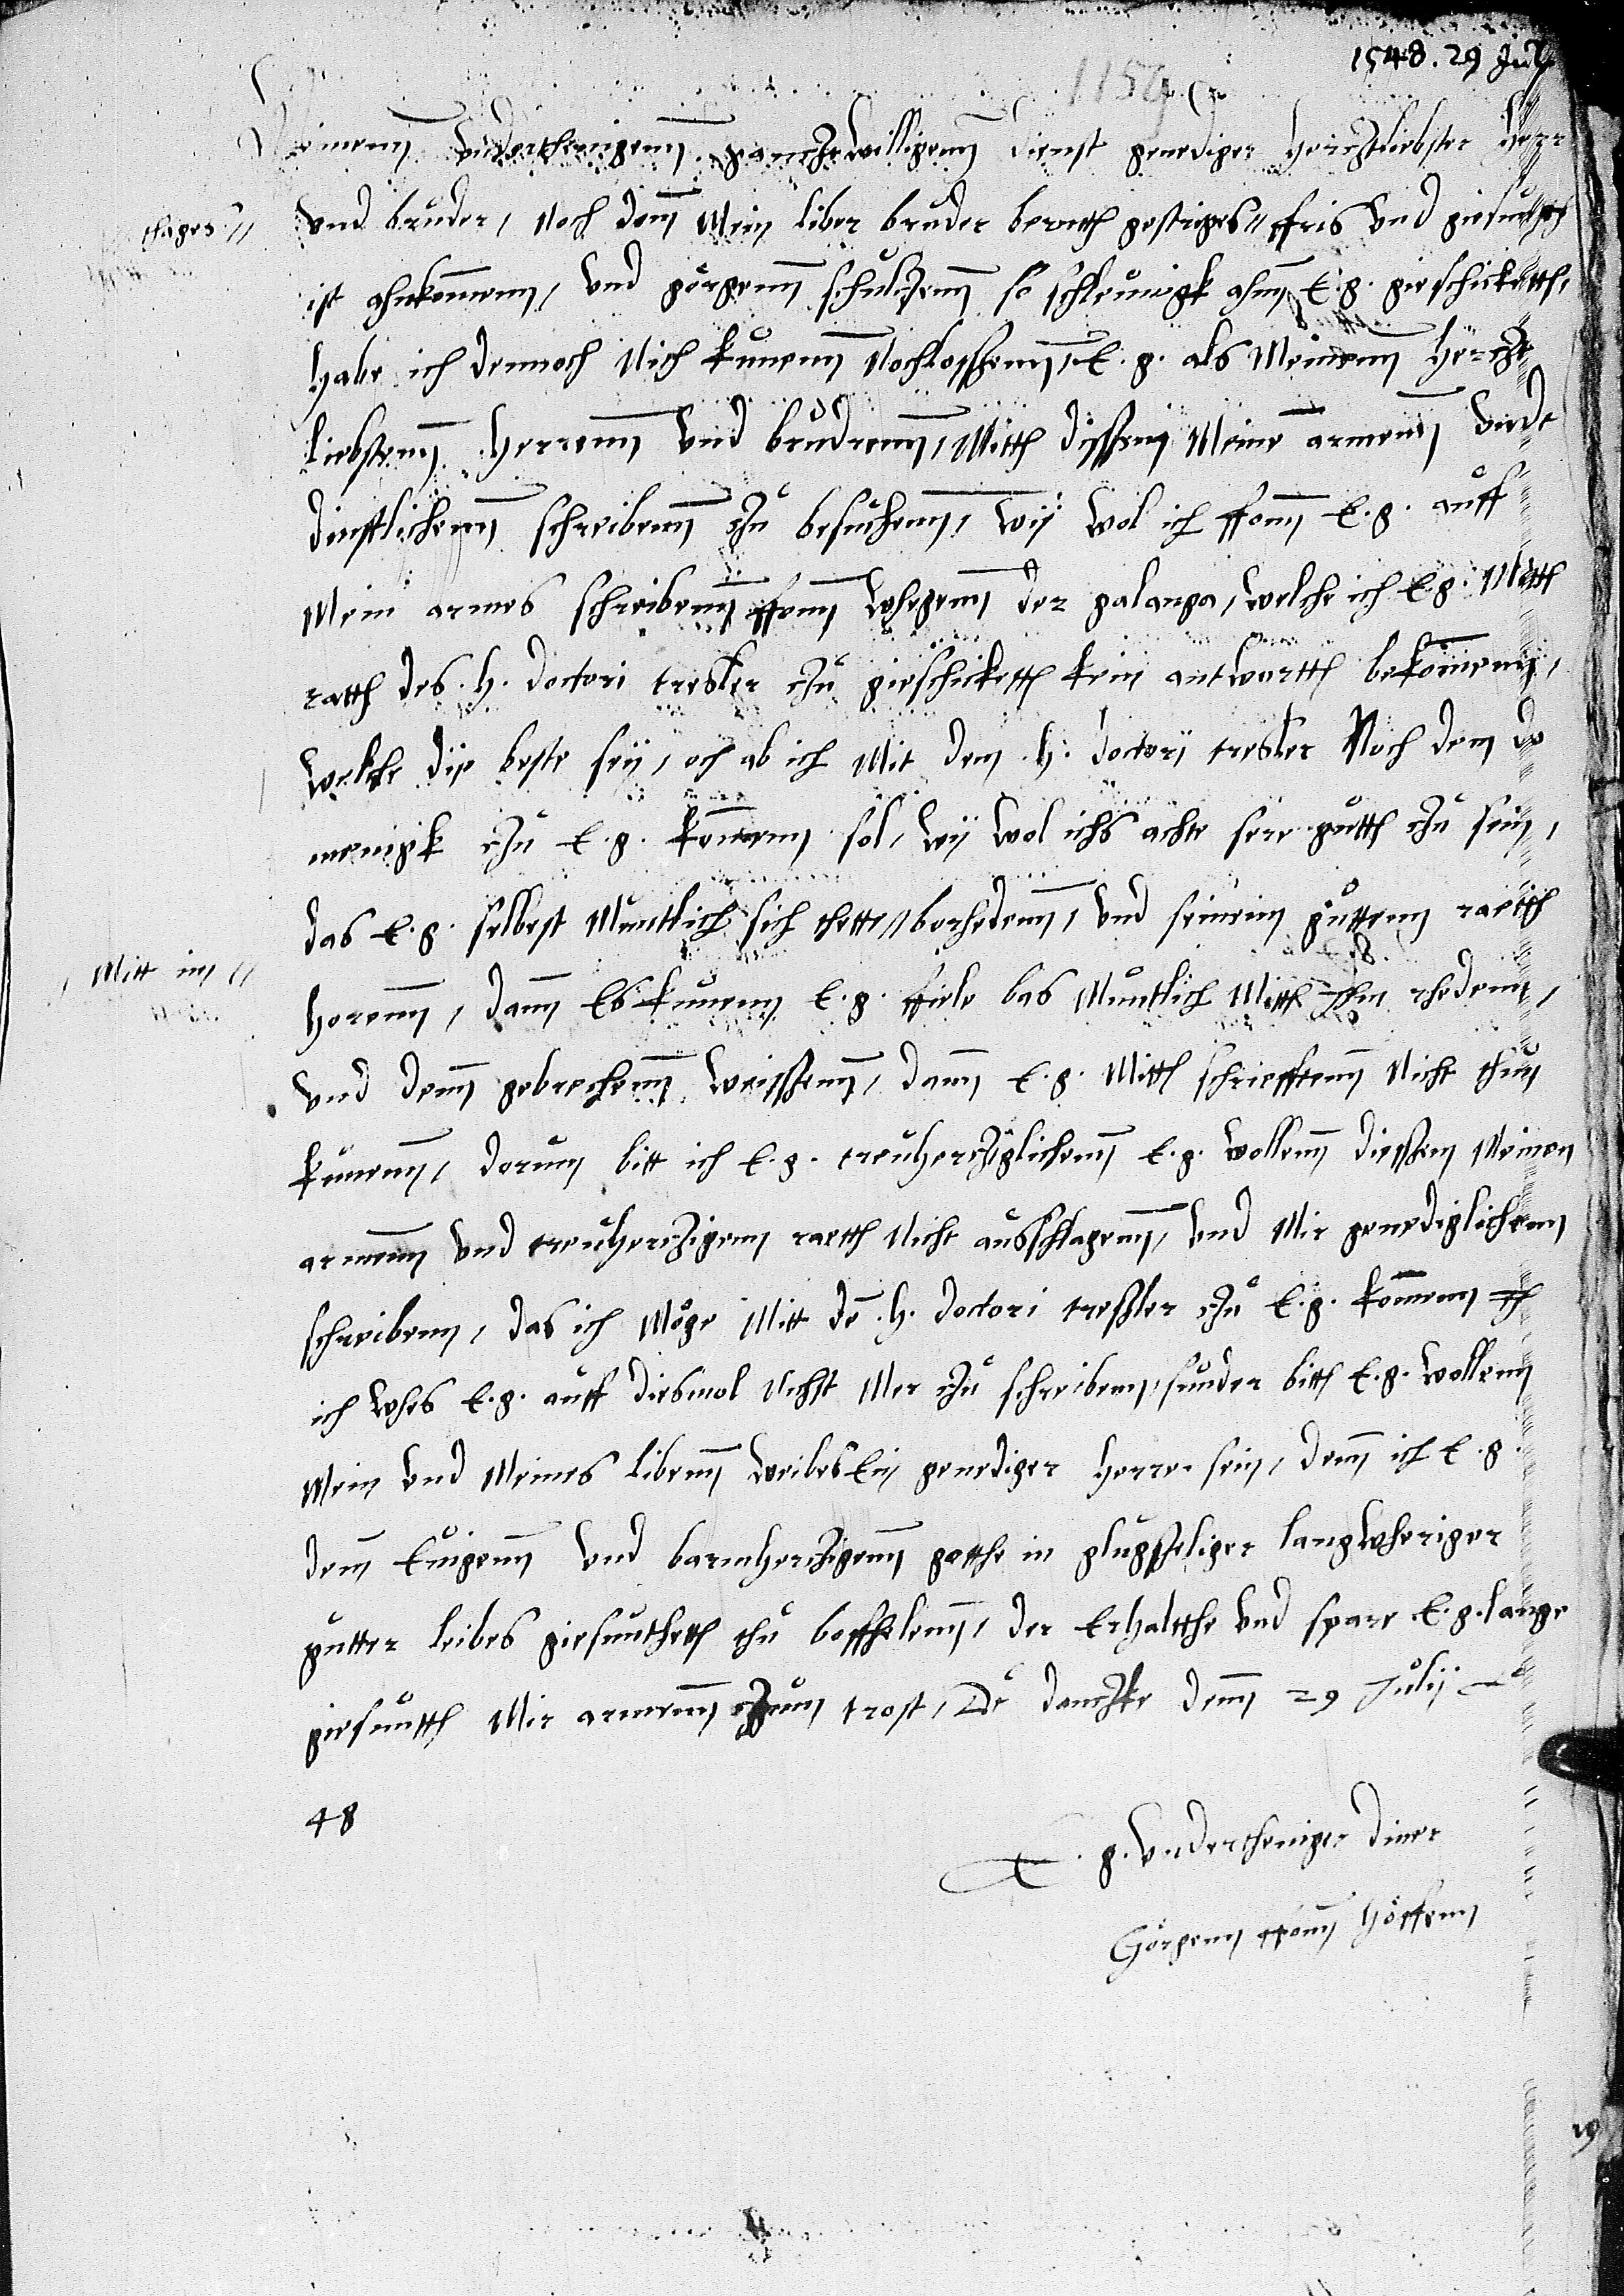 1548. 29 July
1159
Meinenn vnderthenigenn ganczwilligenn dienst genediger herczliebster Herr
vnd bruder, Noch dem Mein liber bruder bernth gestriges // ffris vnd giesunth
thages //
ist ahnkomenn, vnd görgenn schulczenn so schleunigk ahnn E. g. gieschicketth,
habe ich dennoch Nich kunenn Nochlossenn, E. g. als Meinenn hercze
liebstenn Herrenn vnd brudrenn, Mitth dissem Meine armenn vnde
dinstlichenn schreibenn zcu besuchenn, Wij wol ich ffonn E. g. auff
Mein armes schreibenn ffonn Whegenn der galanga, welche ich E. g. Mitth
ratth des H. doctori tresler zcu gieschicketth kein antwurtth bekommen,
welche dije beste seij, och ab ich Mit dem H. doctorij tresler Noch dem do
menigk zcu E. g. komenn sol, wij wol ichs achte sere gutth zcu sein,
das E. g. selbest Muntlich sich thette // berhedenn, vnd seinem guttenn raetth
Mitt im //
horenn, dann Es kunenn E. g. ffiele bas Muntlich Mitth rhedenn,
vnd denn gebrechenn weissenn, dann E. g. Mitth schriefftenn Nicht thun
kunenn, dorum bitt ich E. g. treuhercziglichenn E. g. wollenn diessem Meinen
armenn vnd treuherczigenn raetth Nicht ausschlagenn, vnd Mir genediglichenn
schreibenn, das ich Möge Mitt de H. doctori tressler zcu E. g. komenn
ich Whes E. g. auff diesmol Nichst Mer zcu schreibenn, sunder bitth E. g. wollenn
Mein vnd Meines libenn weibes Ein genediger Herre sein, denn ich E. g.
dem Ewigenn vnd barmherczigenn gotthe in glugseliger langwheriger
gutter leibes giesuntheth zcu beffhelenn, der Erhaltthe vnd spare E. g. lange
giesuntth Mir armenn zcum trost, De danczke denn 29 Julij
48
E. g. vndertheniger diner
Görgenn ffonn Höffenn